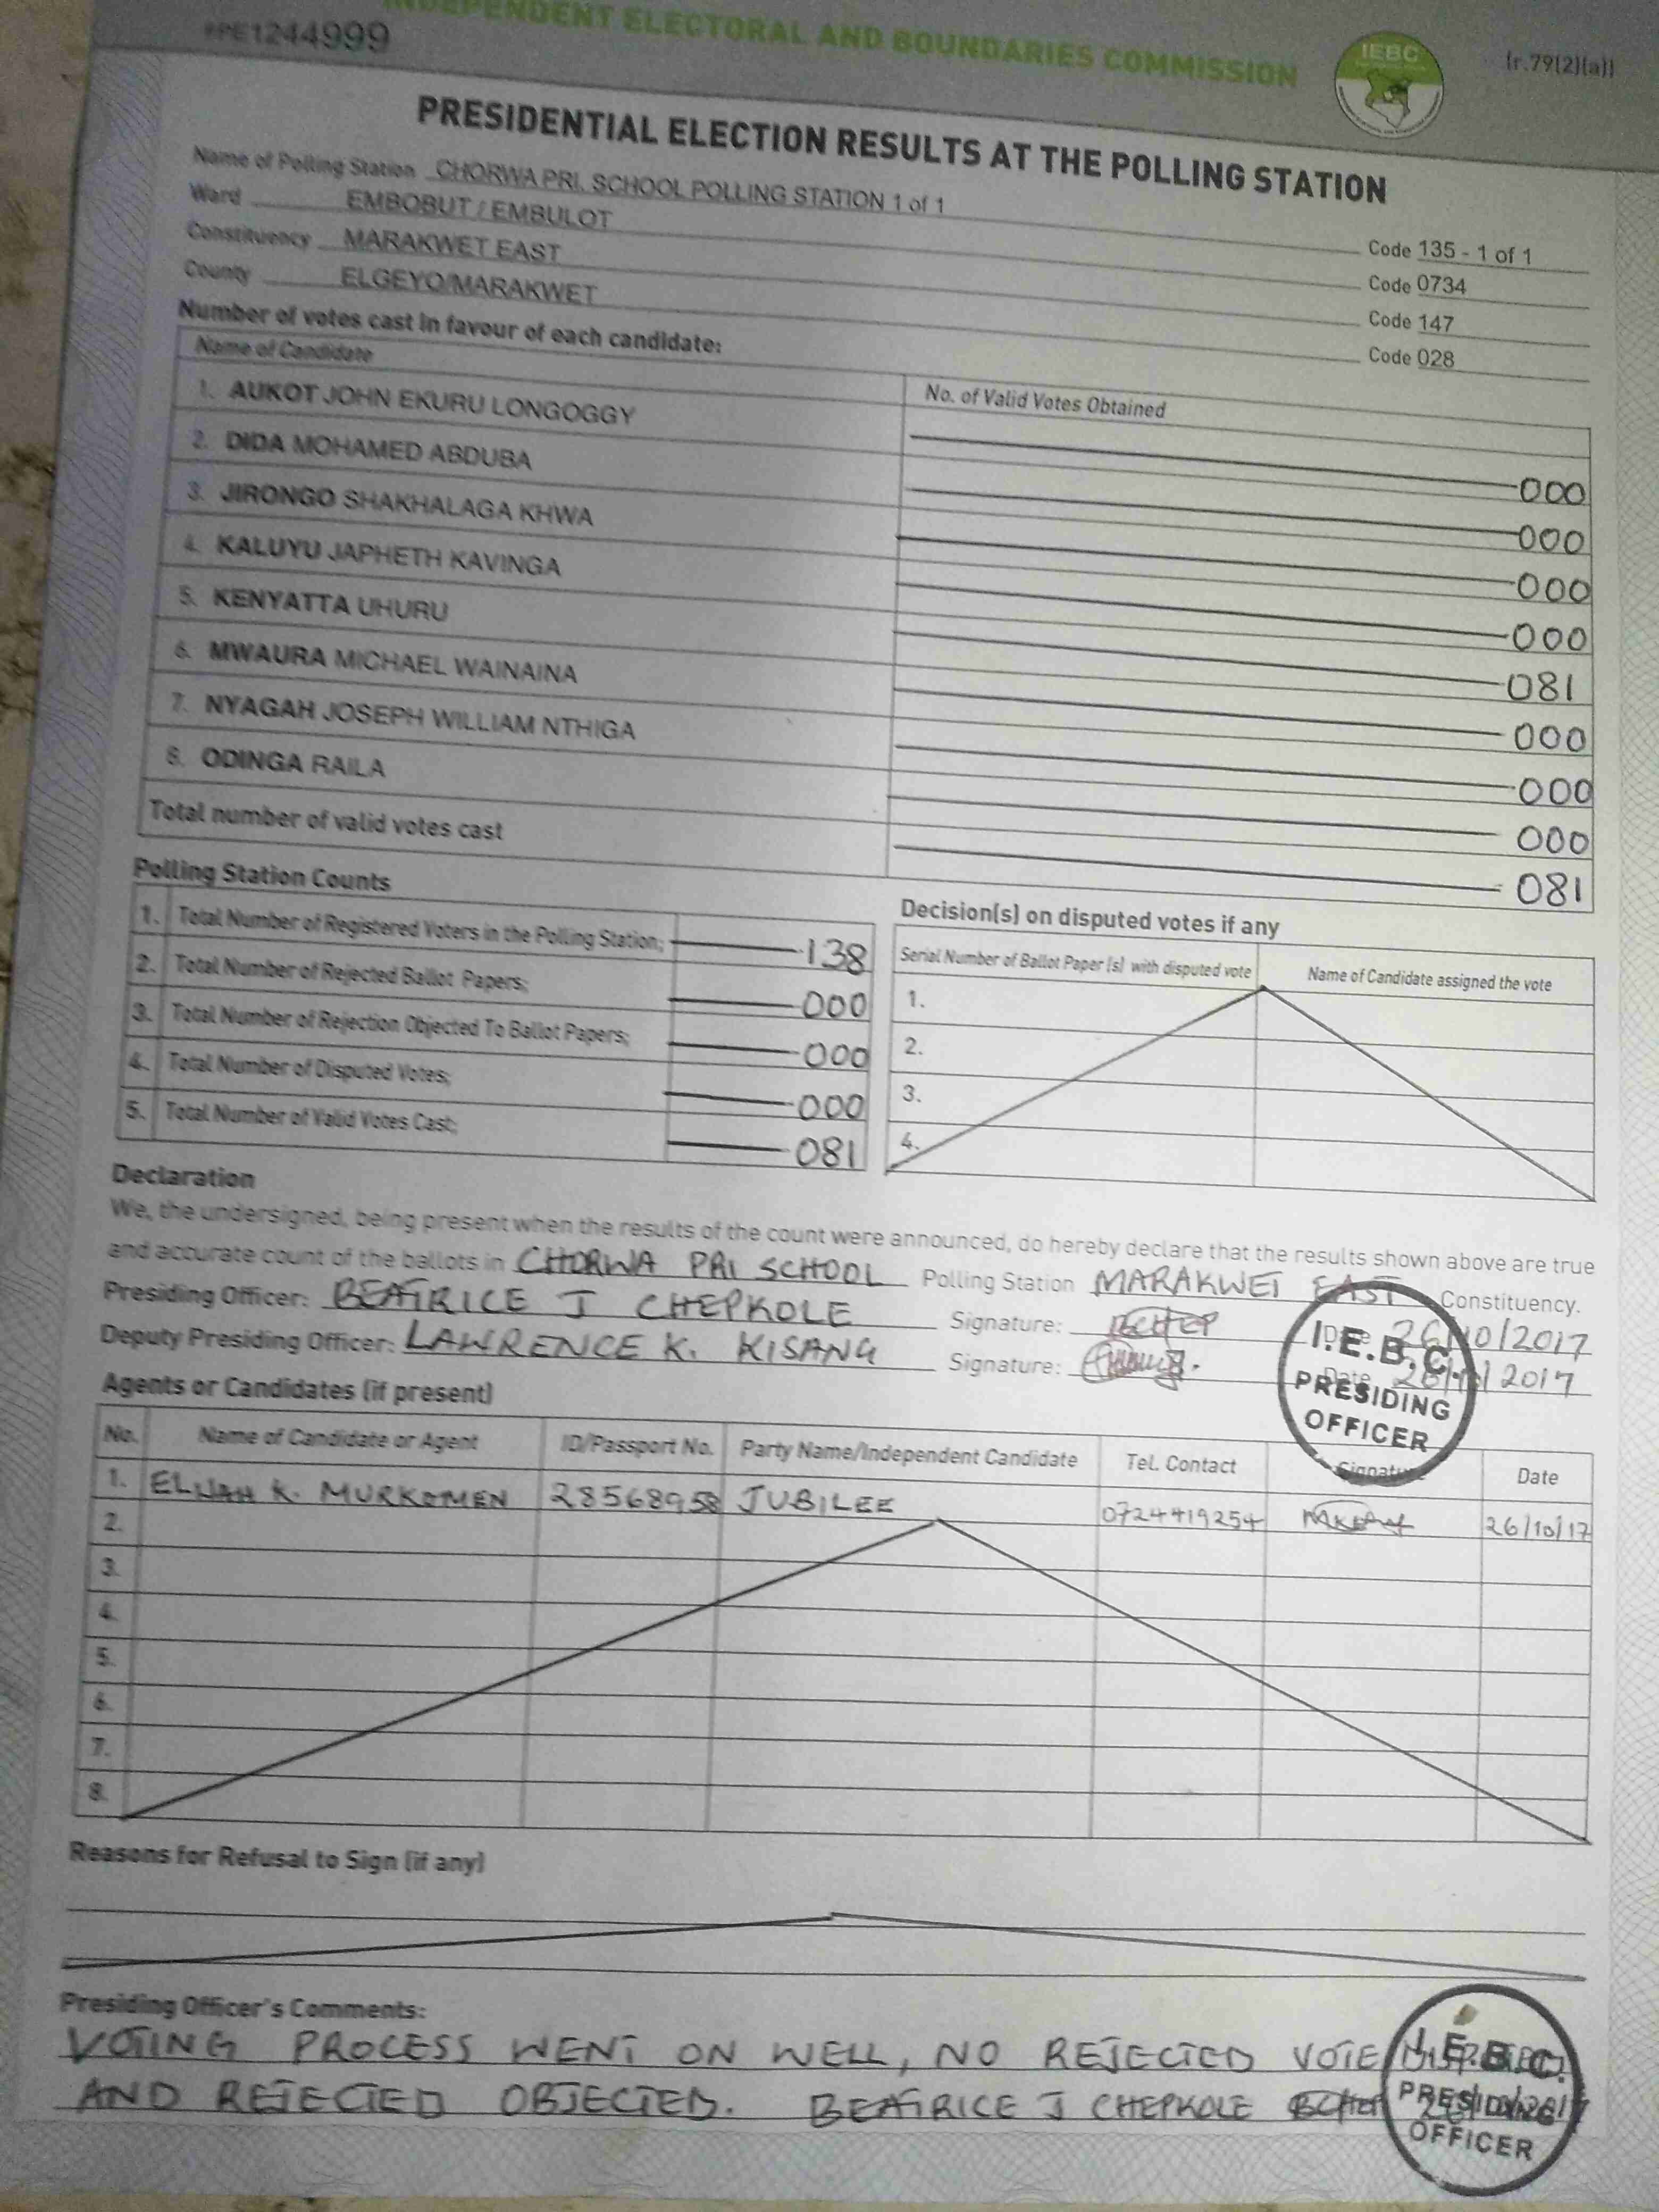 INDEPENDENT ELECTORAL AND BOUNDARIES COMMISSION
#PE1244999
IEBC
(r.79(2)(a))
PRESIDENTIAL ELECTION RESULTS AT THE POLLING STATION
Name of Polling Station CHORWA PRI. SCHOOL POLLING STATION 1 of 1 Code 135 - 1 of 1
Ward EMBOBUT / EMBULOT Code 0734
Constituency MARAKWET EAST Code 147
County ELGEYO/MARAKWET Code 028
Number of votes cast in favour of each candidate:
Name of Candidate No. of Valid Votes Obtained
1. AUKOT JOHN EKURU LONGOGGY 000
2. DIDA MOHAMED ABDUBA 000
3. JIRONGO SHAKHALAGA KHWA 000
4. KALUYU JAPHETH KAVINGA 000
5. KENYATTA UHURU 081
6. MWAURA MICHAEL WAINAINA 000
7. NYAGAH JOSEPH WILLIAM NTHIGA 000
8. ODINGA RAILA 000
Total number of valid votes cast 081
Polling Station Counts
1. Total Number of Registered Voters in the Polling Station; 138
2. Total Number of Rejected Ballot Papers; 000
3. Total Number of Rejection Objected To Ballot Papers; 000
4. Total Number of Disputed Votes; 000
5. Total Number of Valid Votes Cast; 081
Decision(s) on disputed votes if any
Serial Number of Ballot Paper (s) with disputed vote Name of Candidate assigned the vote
1.
2.
3.
4.
Declaration
We, the undersigned, being present when the results of the count were announced, do hereby declare that the results shown above are true
and accurate count of the ballots in CHORWA PRI SCHOOL Polling Station MARAKWET EAST Constituency.
Presiding Officer: BEATRICE J CHEPKOLE Signature: BCHEP Date 26/10/2017
Deputy Presiding Officer: LAWRENCE K. KISANG Signature: Date 26/10/2017
I.E.B.C.
PRESIDING
OFFICER
Agents or Candidates (if present)
No. Name of Candidate or Agent ID/Passport No. Party Name/Independent Candidate Tel. Contact Signature Date
1. ELIJAH K. MURKOMEN 28568958 JUBILEE 0724419254 26/10/17
2.
3.
4.
5.
6.
7.
8.
Reasons for Refusal to Sign (if any)
Presiding Officer's Comments:
VOTING PROCESS WENT ON WELL, NO REJECTED VOTE DISPUTED
AND REJECTED OBJECTED. BEATRICE J CHEPKOLE BCHEP 26/10/2017
I.E.B.C.
PRESIDING
OFFICER